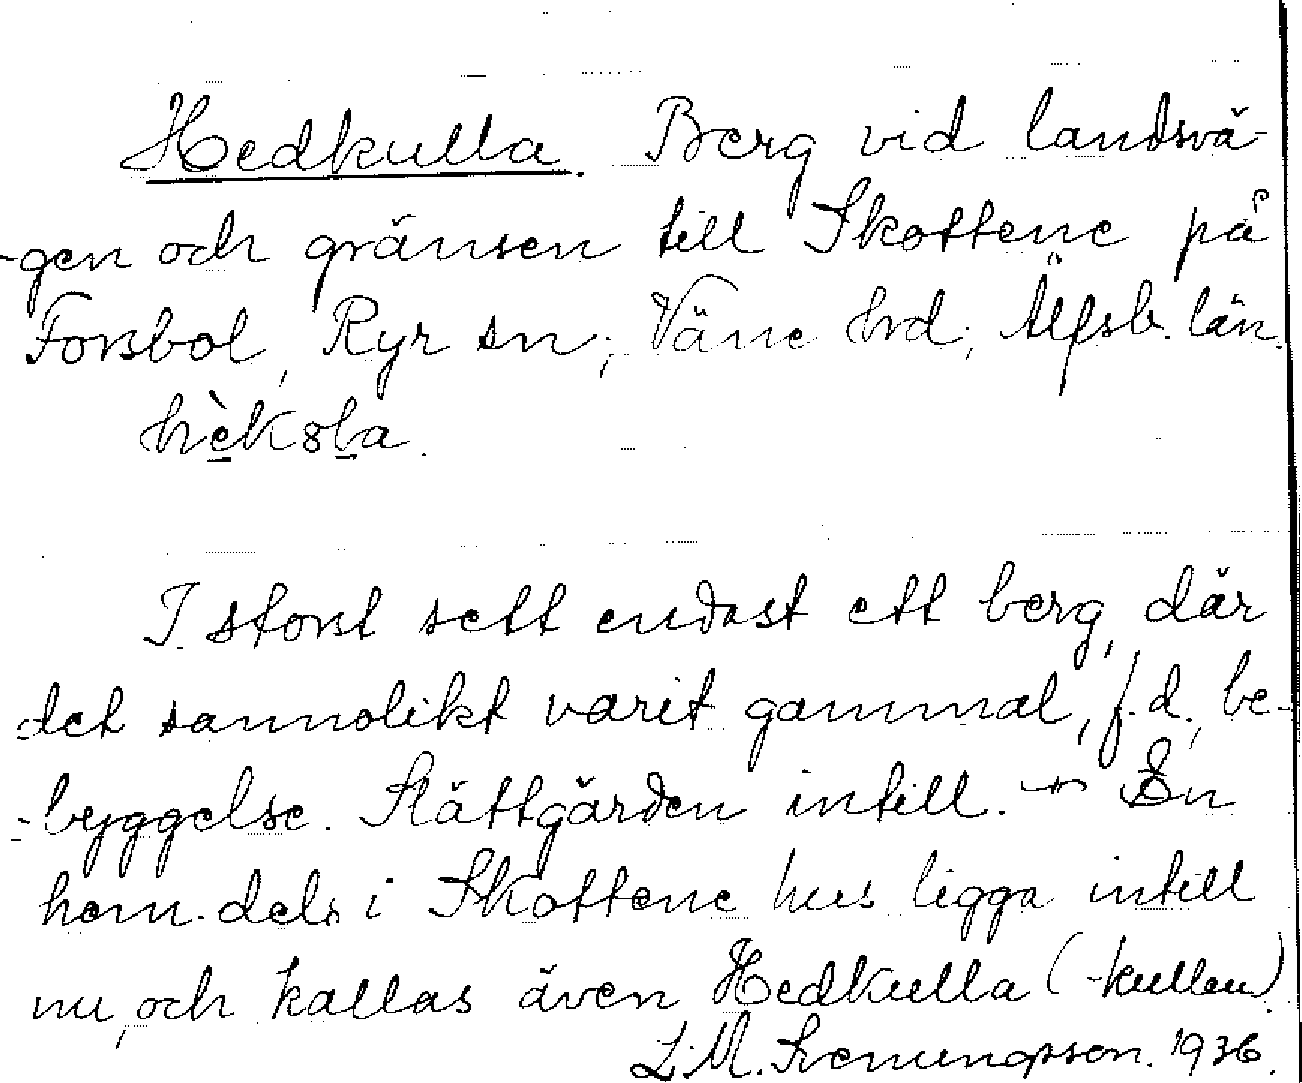 Hedkulla. Berg vid landsvä-
-gen och gränsen till Skottene på
Forsbol, Ryr sn; Väne hrd; Älfsb. län.
hèk8la.
I stort sett endast ett berg, där
det sannolikt varit gammal, f.d., be-
-byggelse. Slättgärden intill. En
hem. dels i Skottene hus ligga intill
nu, och kallas även Hedkulla (-kullen)
L.M. 1936.